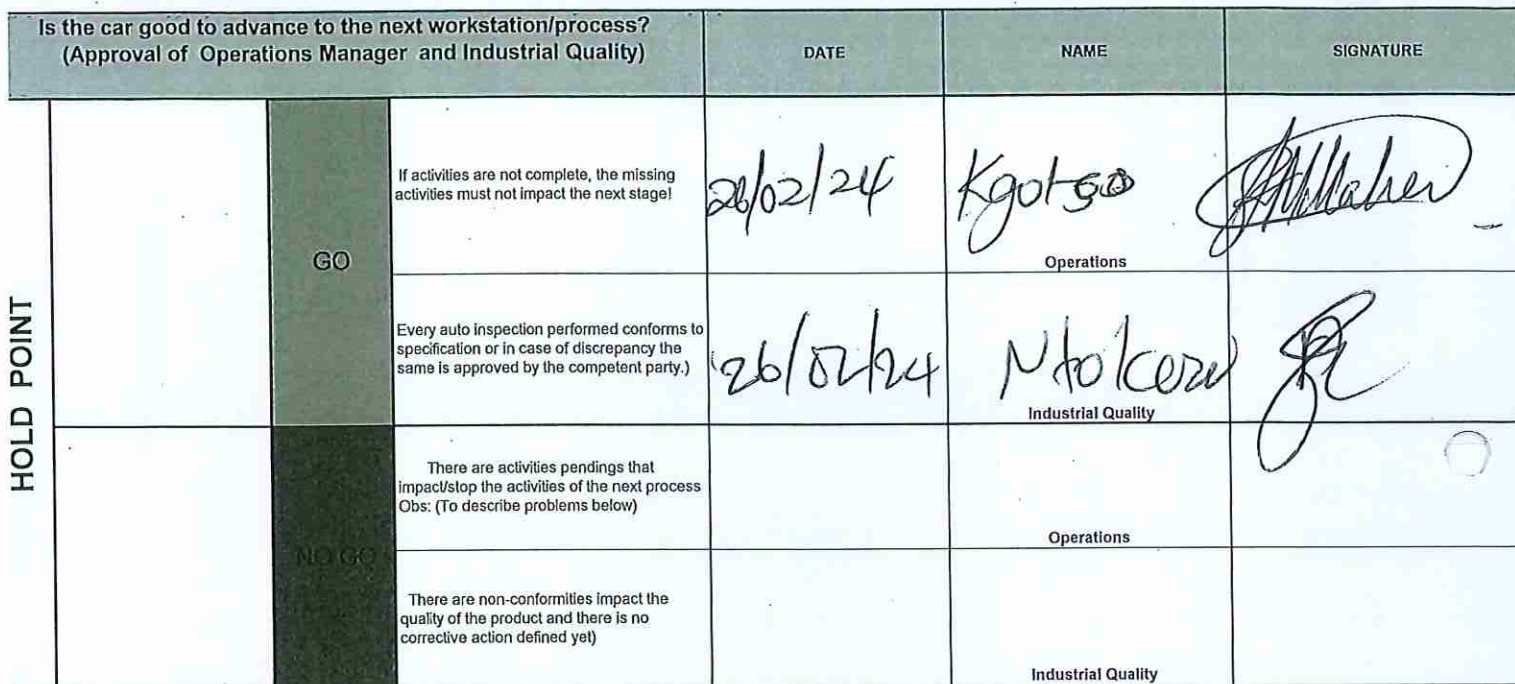 Is the car good to advance to the next workstation/process?
(Approval of Operations Manager and Industrial Quality)
DATE
NAME
SIGNATURE
HOLD POINT
GO
If activities are not complete, the missing
activities must not impact the next stage!
26/02/24
Kgotso
Operations
Every auto inspection performed conforms to
specification or in case of discrepancy the
same is approved by the competent party.)
26/02/24
Industrial Quality
NO GO
There are activities pendings that
impact/stop the activities of the next process
Obs: (To describe problems below)
Operations
There are non-conformities impact the
quality of the product and there is no
corrective action defined yet)
Industrial Quality